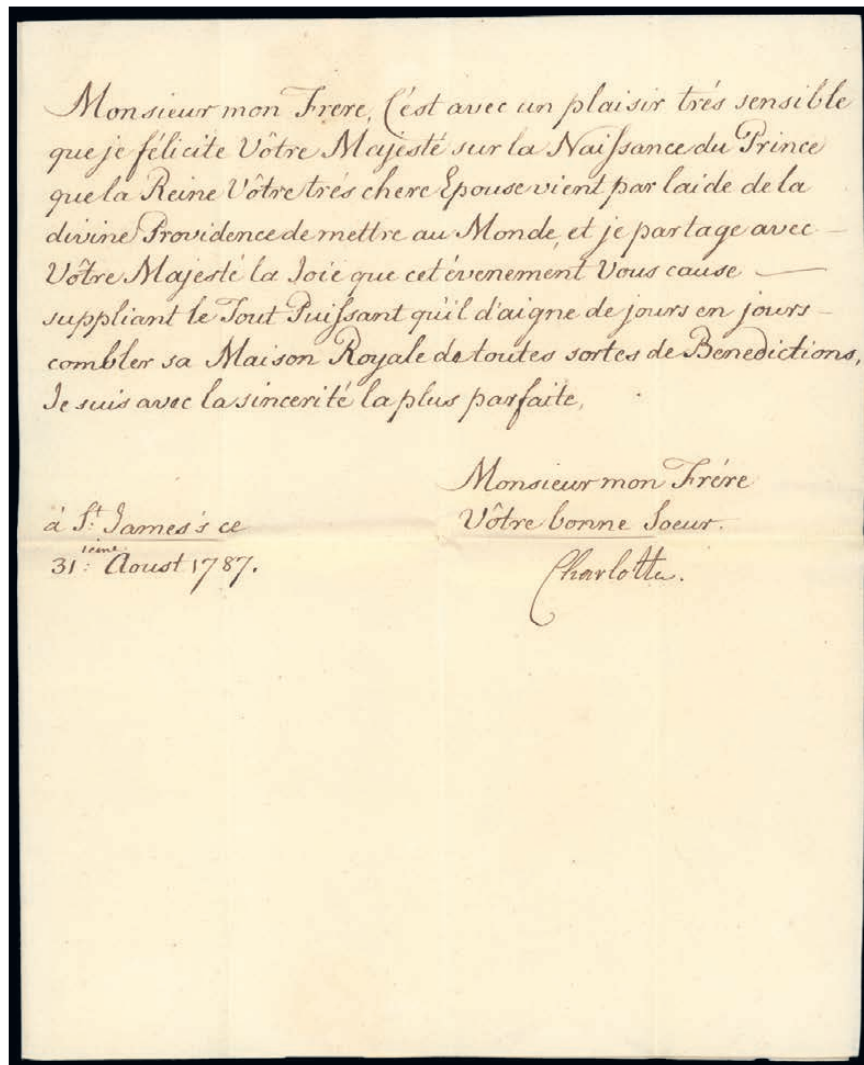 Monsieur mon Frere, C'est avec un plaisir trés sensible
que je félicite Vôtre Majesté sur la Naissance du Prince
que la Reine Vôtre trés chere Epouse vient par laide de la
divine Providence de mettre au Monde, et je partage avec —
Vôtre Majesté la Joie que cet évenement Vous cause —
suppliant le Tout Puissant qu'il d'aigne de jours en jours —
combler sa Maison Royale de toutes sortes de Benedictions,
Je suis avec la sincerité la plus parfaite,
Monsieur mon Frére
Vôtre bonne Soeur.
Charlotte.
á St. James's ce
31:ieme Aoust 1787.